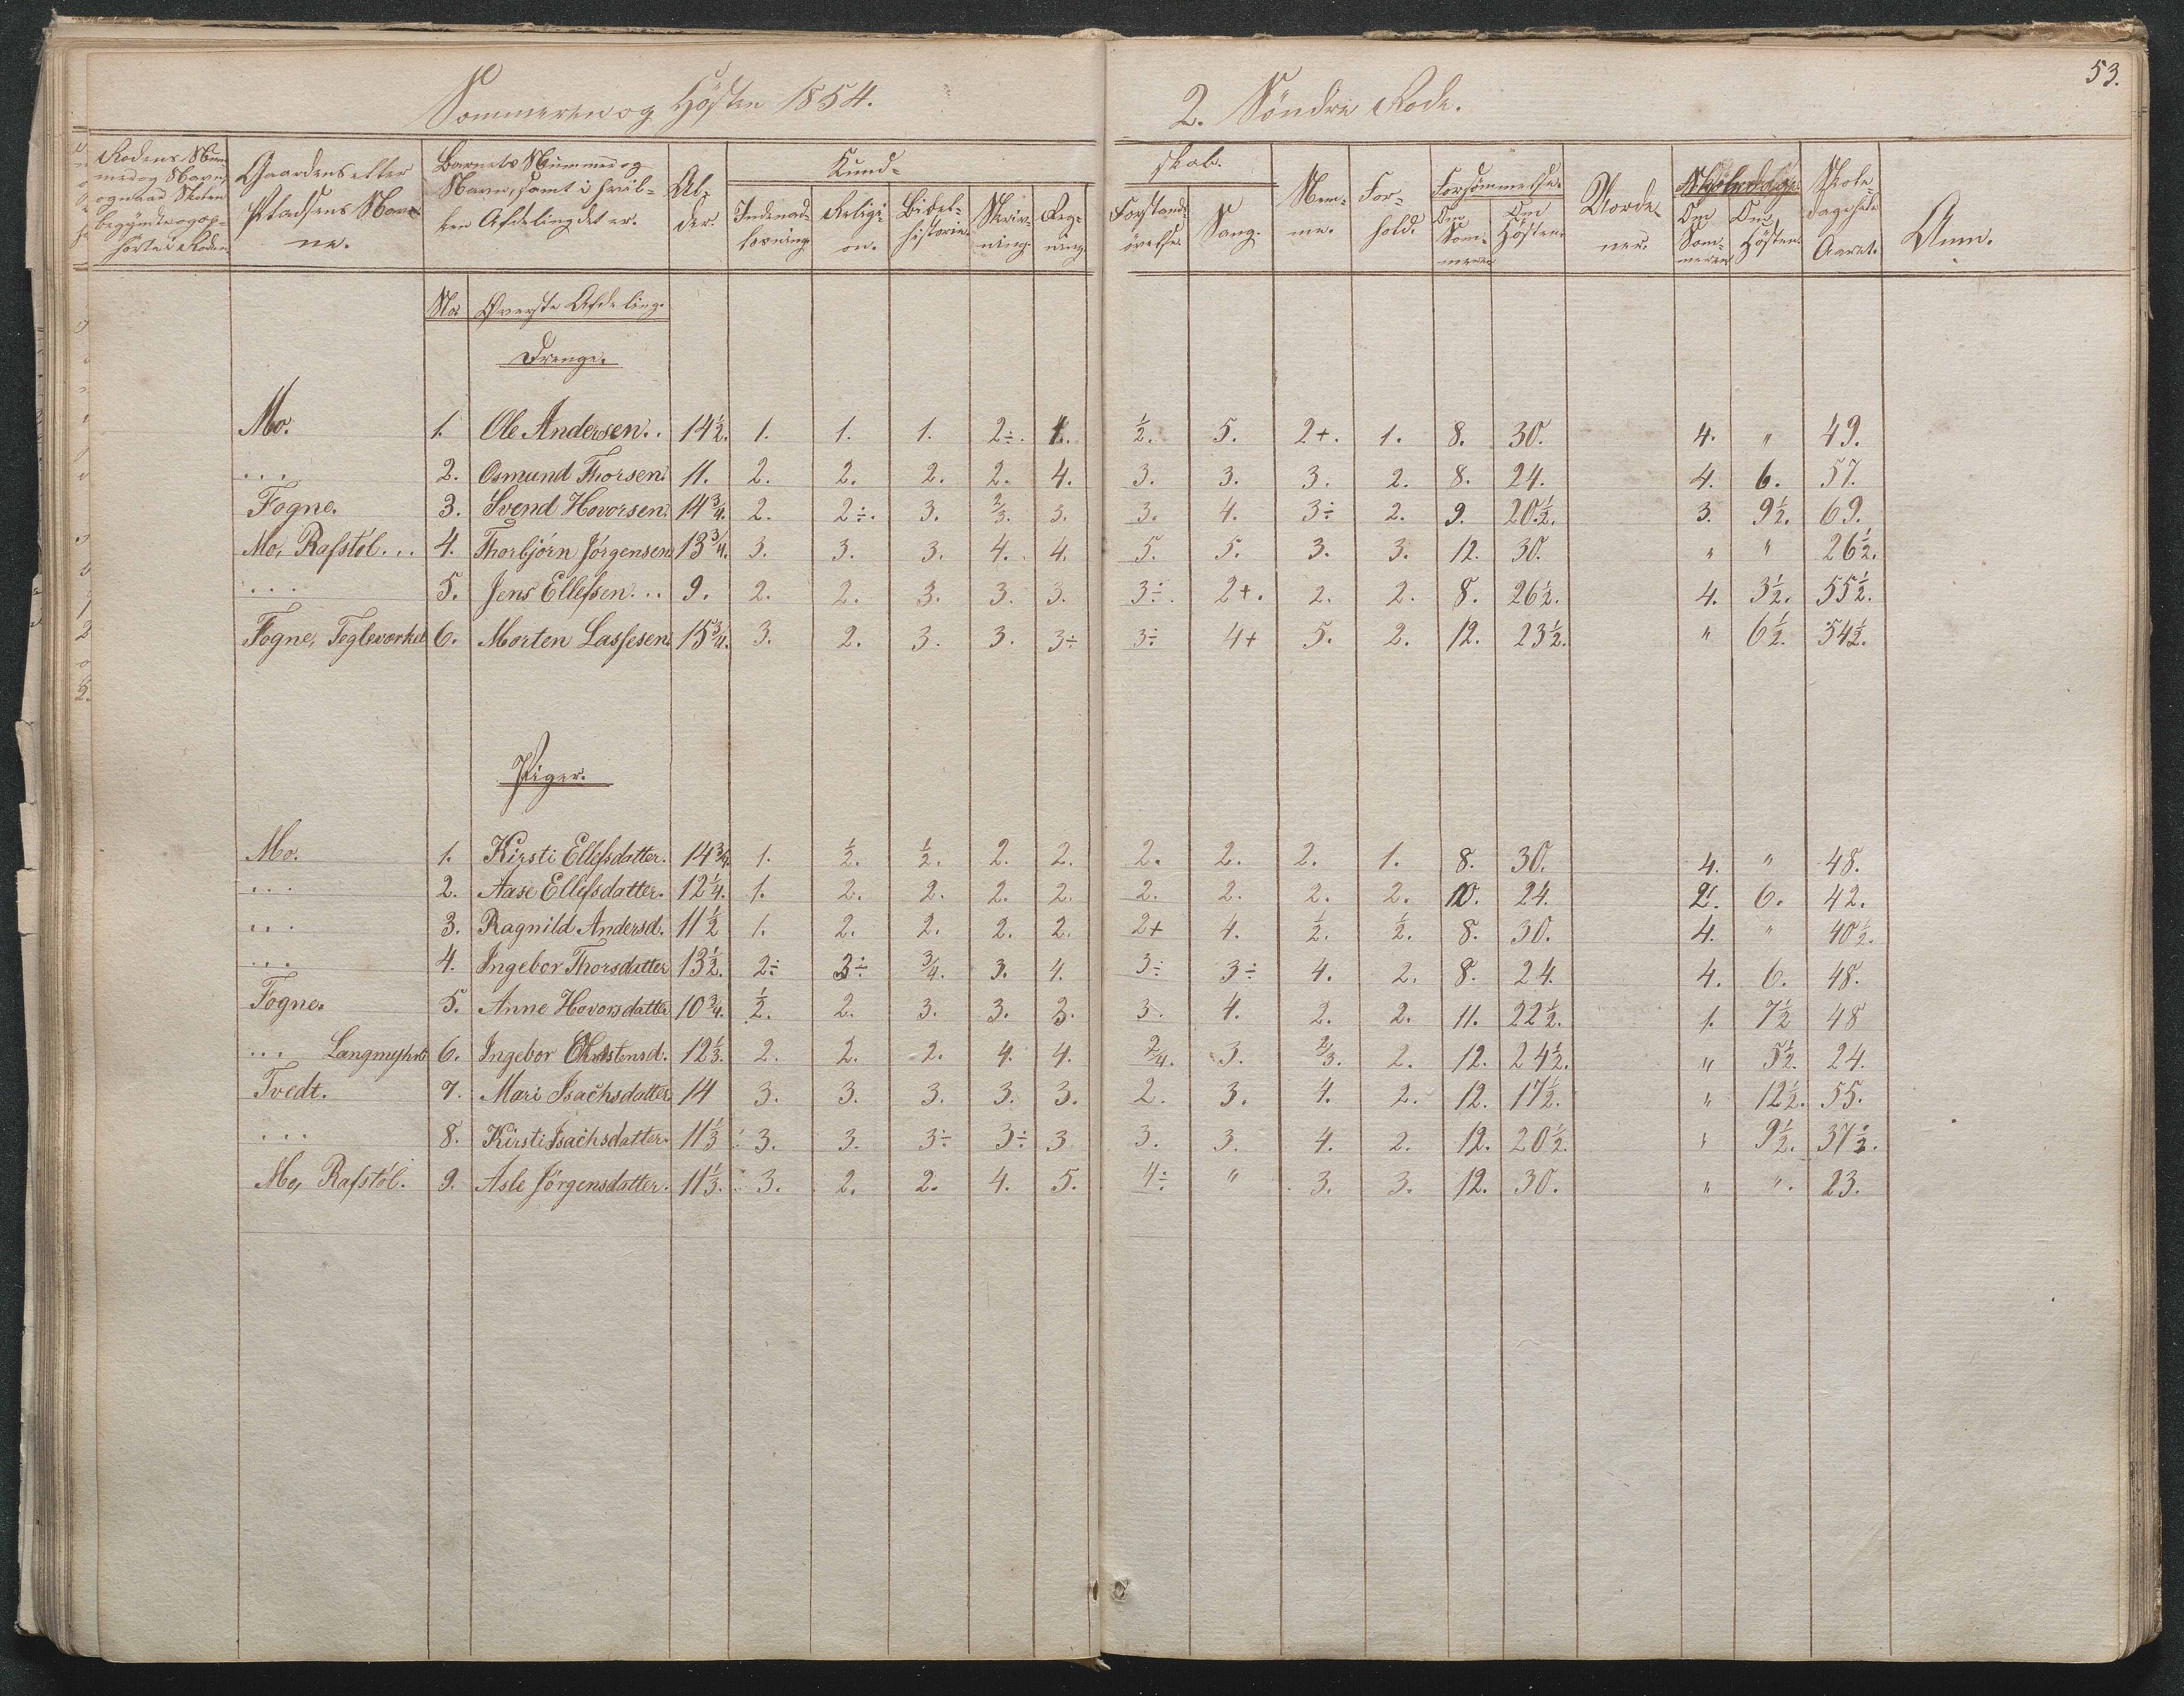 Sommeren og Hösten 1854.
2. Söndre Rode.
53.
Rodens Nummer og Navn, og naar Skolen begyndte og ophörte i Roden.
Gaardens eller Pladsens Navne.
Barnets Nummer og Navn, samt i hvilken Afdeling det er.
Alder.
Kundskab.
Indenadlæsning.
Religion.
Bibelhistorie.
Skrivning.
Regning.
Forstandsövelse.
Sang.
Nemme.
Forhold.
Forsömmelse.
Om Sommeren
Om Hösten.
Vordener.
Skoledage
Om Sommeren
Om Hösten.
Skoledage hele Aaret.
Anm.
No. Överste Afdeling.
Drenge.
Mo. 1. Ole Andersen.. 14½. 1. 1. 1. 2÷. 1. ½. 5. 2+. 1. 8. 30. 4. " 49.
... 2. Osmund Thorsen. 11. 2. 2. 2. 2. 4. 3. 3. 3. 2. 8. 24. 4. 6. 57.
Fogne. 3. Svend Hovorsen. 14¾. 2. 2÷. 3. 2/3. 3. 3. 4. 3÷ 2. 9. 20½. 3. 9½. 69.
Mo, Rafstöl... 4. Thorbjörn Jörgensen 13¾. 3. 3. 3. 4. 4. 5. 5. 3. 3. 12. 30. " " 26½.
... 5. Jens Ellefsen... 9. 2. 2. 3. 3. 3. 3÷. 2+. 2. 2. 8. 26½. 4. 3½. 55½.
Fogne, Tegleværket 6. Morten Lassesen 15¾. 3. 2. 3. 3. 3÷ 3÷ 4+ 5. 2. 12. 23½. " 6½. 54½.
Piger.
Mo. 1. Kirsti Ellefsdatter. 14¾ 1. ½. ½. 2. 2. 2. 2. 2. 1. 8. 30. 4. " 48.
... 2. Aase Ellefsdatter. 12¼. 1. 2. 2. 2. 2. 2. 2. 2. 2. 10. 24. 2. 6. 42.
... 3. Ragnild Andersd. 11½ 1. 2. 2. 2. 2. 2+ 4. ½. ½. 8. 30. 4. " 40½.
... 4. Ingebor Thorsdatter 13½. 2÷ 3÷ ¾. 3. 4. 3÷ 3÷ 4. 2. 8. 24. 4. 6. 48.
Fogne. 5. Anne Hovorsdatter 10¾. ½. 2. 3. 3. 3. 3. 4. 2. 2. 11. 22½. 1. 7½ 48
... Langmyhr 6. Ingebor Christensd. 12⅓. 2. 2. 2. 4. 4. 2/4. 3. 2/3. 2. 12. 24½. " 5½. 24.
Tvedt. 7. Mari Isachsdatter 14 3. 3. 3. 3. 3. 2. 3. 4. 2. 12. 17½. " 12½. 55.
... 8. Kirsti Isachsdatter. 11⅓ 3. 3. 3÷ 3÷ 3 3. 3. 4. 2. 12. 20½. " 9½. 37½.
Mo, Rafstöl. 9. Asle Jörgensdatter. 11⅓. 3. 2. 2. 4. 5. 4÷ " 3. 3. 12. 30. " ". 23.